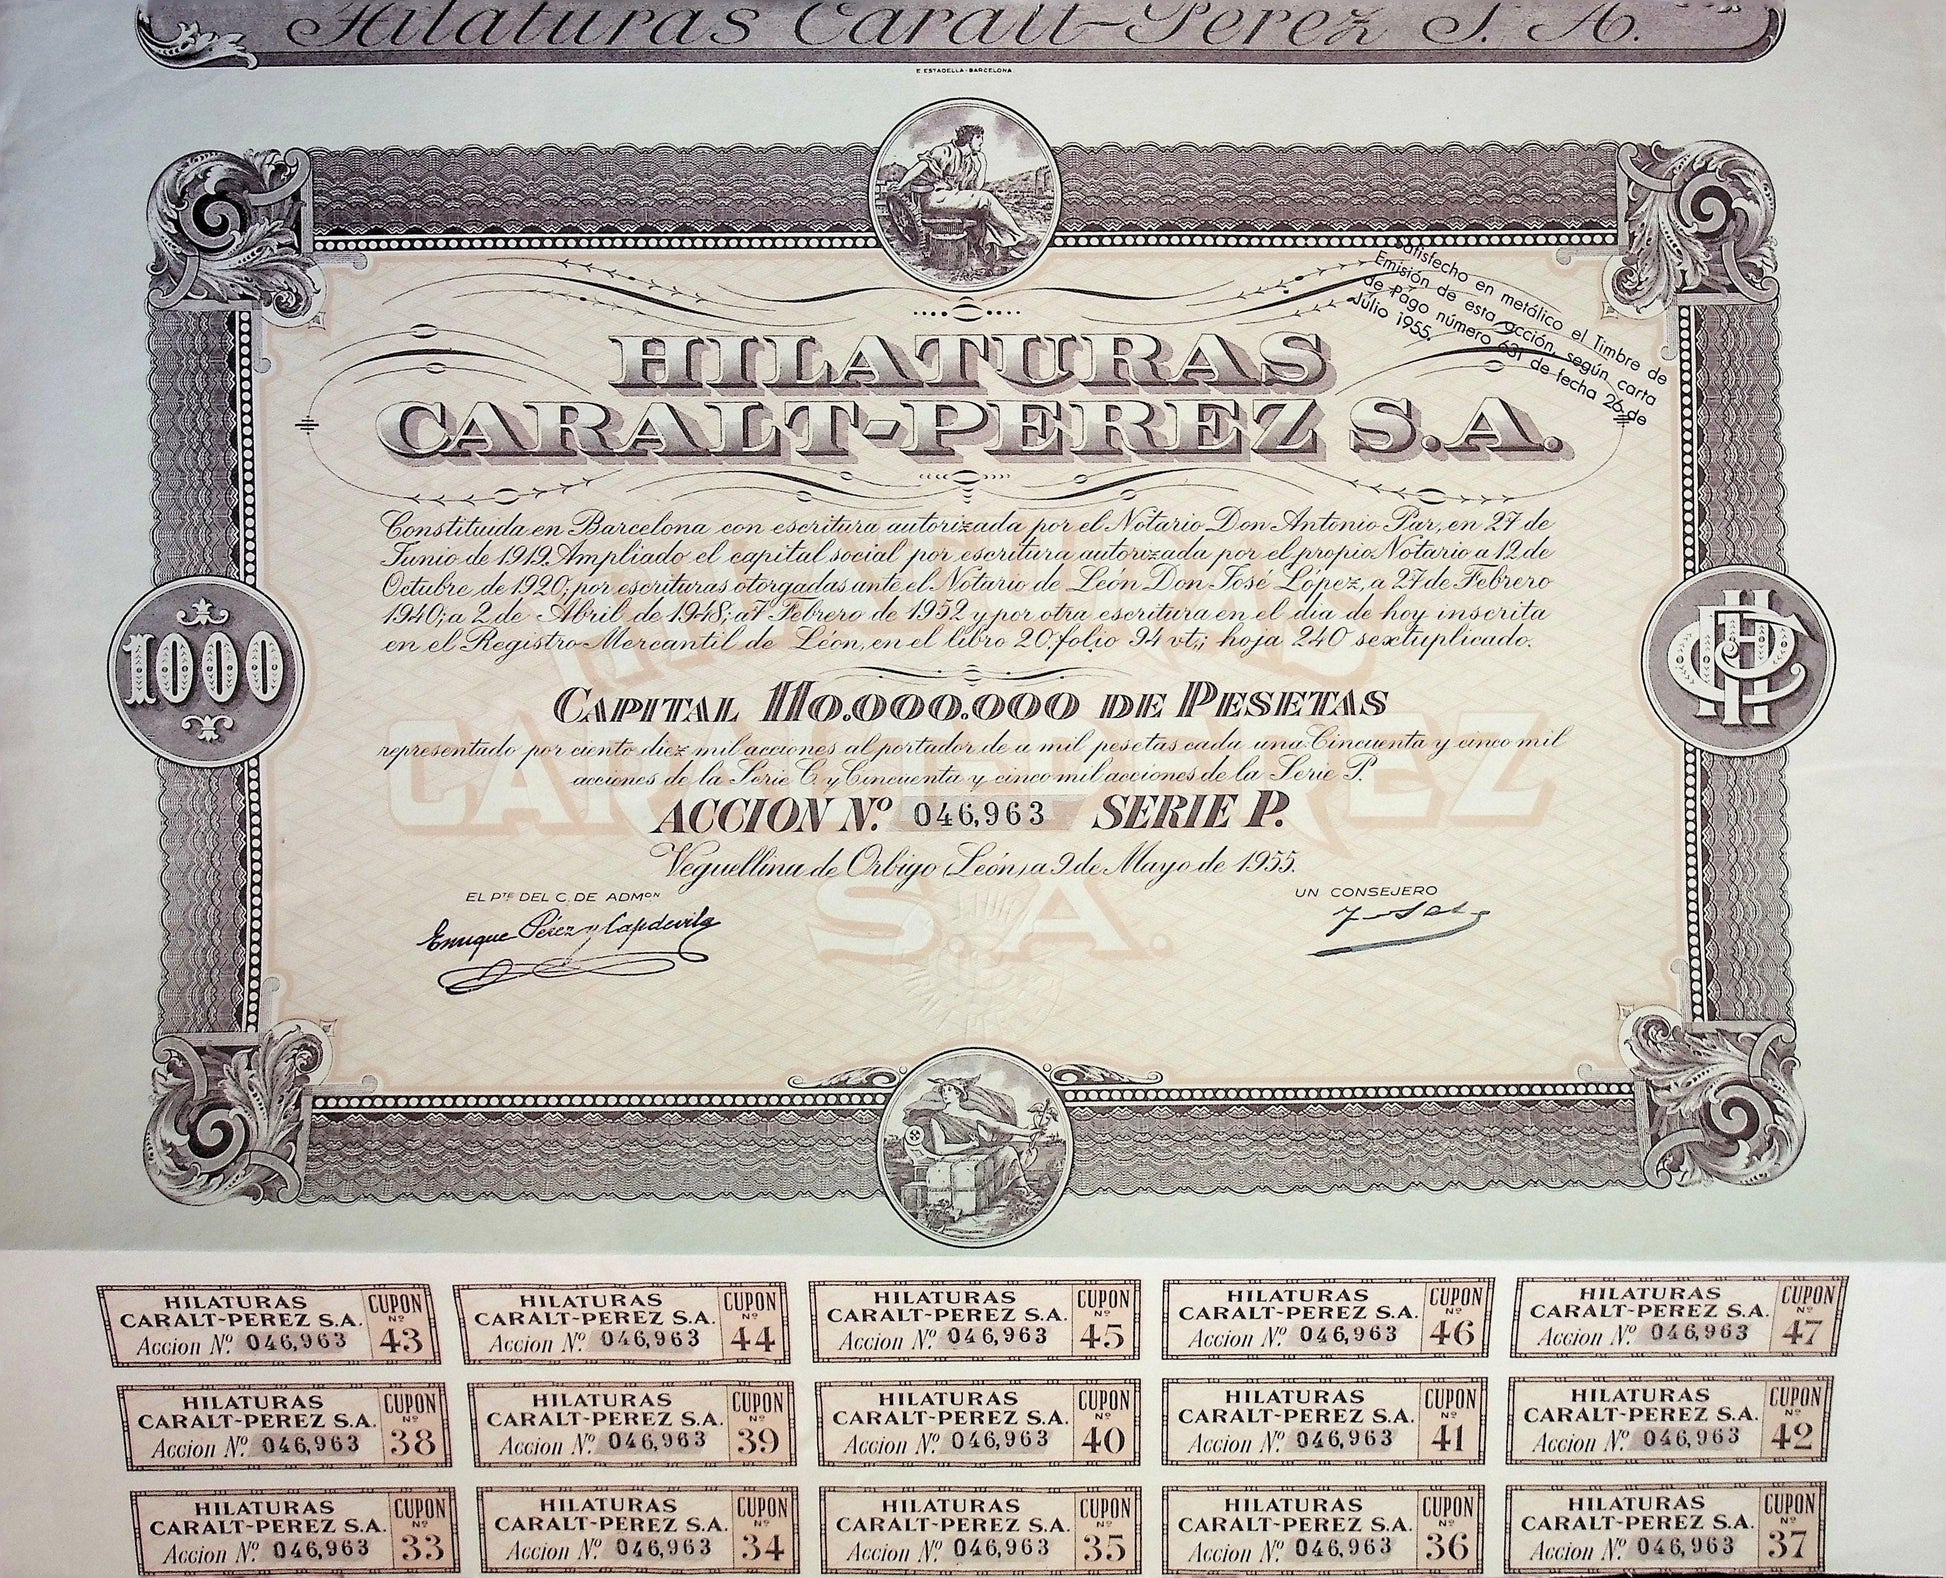 Hilaturas Caralt-Perez S. A.
E. ESTADELLA - BARCELONA
Satisfecho en metálico el Timbre de
Emisión de esta acción, según carta
de Pago número 631 de fecha 26 de
Julio 1955.
HILATURAS
CARALT-PEREZ S.A.
Constituida en Barcelona con escritura autorizada por el Notario Don Antonio Par, en 27 de
Junio de 1919. Ampliado el capital social por escritura autorizada por el propio Notario a 12 de
Octubre de 1920; por escrituras otorgadas ante el Notario de León Don José López, a 27 de Febrero
1940; a 2 de Abril de 1948; a 7 Febrero de 1952 y por otra escritura en el dia de hoy inscrita
en el Registro Mercantil de Léon, en el libro 20, folio 94 vt; hoja 240 sextuplicado.
1000
CAPITAL 110.000.000 DE PESETAS
representado por ciento diez mil acciones al portador de a mil pesetas cada una: Cincuenta y cinco mil
acciones de la Serie C y Cincuenta y cinco mil acciones de la Serie P.
ACCION Nº 046,963 SERIE P.
Veguellina de Orbigo (León) a 9 de Mayo de 1955.
EL PTE DEL C. DE ADMON
UN CONSEJERO
Enrique Pérez y Capdevila
HILATURAS
CARALT-PEREZ S.A.
S.A.
HILATURAS CARALT-PEREZ S.A. Accion Nº 046,963 CUPON Nº 43
HILATURAS CARALT-PEREZ S.A. Accion Nº 046,963 CUPON Nº 44
HILATURAS CARALT-PEREZ S.A. Accion Nº 046,963 CUPON Nº 45
HILATURAS CARALT-PEREZ S.A. Accion Nº 046,963 CUPON Nº 46
HILATURAS CARALT-PEREZ S.A. Accion Nº 046,963 CUPON Nº 47
HILATURAS CARALT-PEREZ S.A. Accion Nº 046,963 CUPON Nº 38
HILATURAS CARALT-PEREZ S.A. Accion Nº 046,963 CUPON Nº 39
HILATURAS CARALT-PEREZ S.A. Accion Nº 046,963 CUPON Nº 40
HILATURAS CARALT-PEREZ S.A. Accion Nº 046,963 CUPON Nº 41
HILATURAS CARALT-PEREZ S.A. Accion Nº 046,963 CUPON Nº 42
HILATURAS CARALT-PEREZ S.A. Accion Nº 046,963 CUPON Nº 33
HILATURAS CARALT-PEREZ S.A. Accion Nº 046,963 CUPON Nº 34
HILATURAS CARALT-PEREZ S.A. Accion Nº 046,963 CUPON Nº 35
HILATURAS CARALT-PEREZ S.A. Accion Nº 046,963 CUPON Nº 36
HILATURAS CARALT-PEREZ S.A. Accion Nº 046,963 CUPON Nº 37